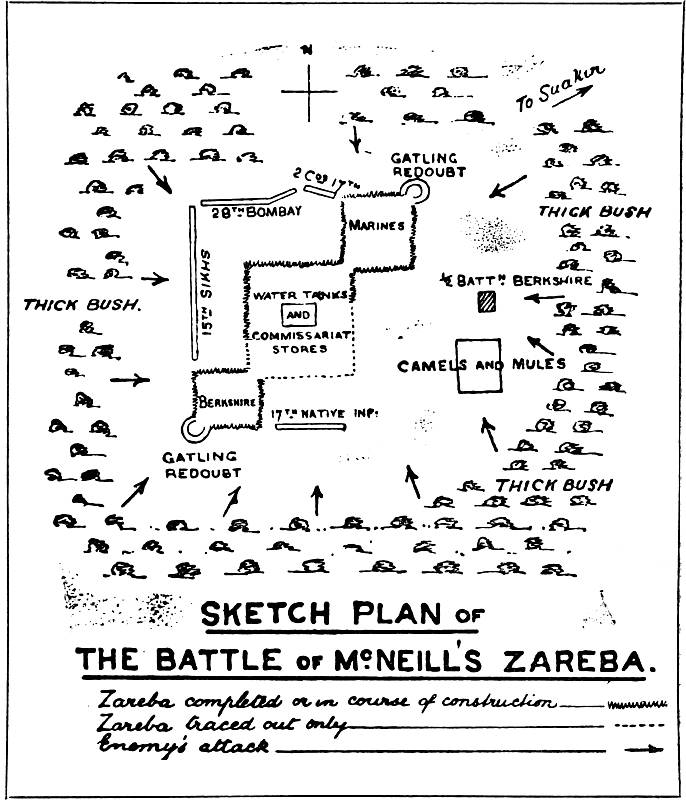 N
To Suakin
GATLING
REDOUBT
2 Cos 17TH
28TH BOMBAY
MARINES
THICK BUSH
15TH SIKHS
½ BATTN BERKSHIRE
WATER TANKS
AND
COMMISSARIAT
STORES
THICK BUSH.
CAMELS AND MULES
BERKSHIRE
17TH NATIVE INF:
GATLING
REDOUBT
THICK BUSH
SKETCH PLAN OF
THE BATTLE OF McNEILL'S ZAREBA.
Zareba completed or in course of construction
Zareba traced out only
Enemy's attack